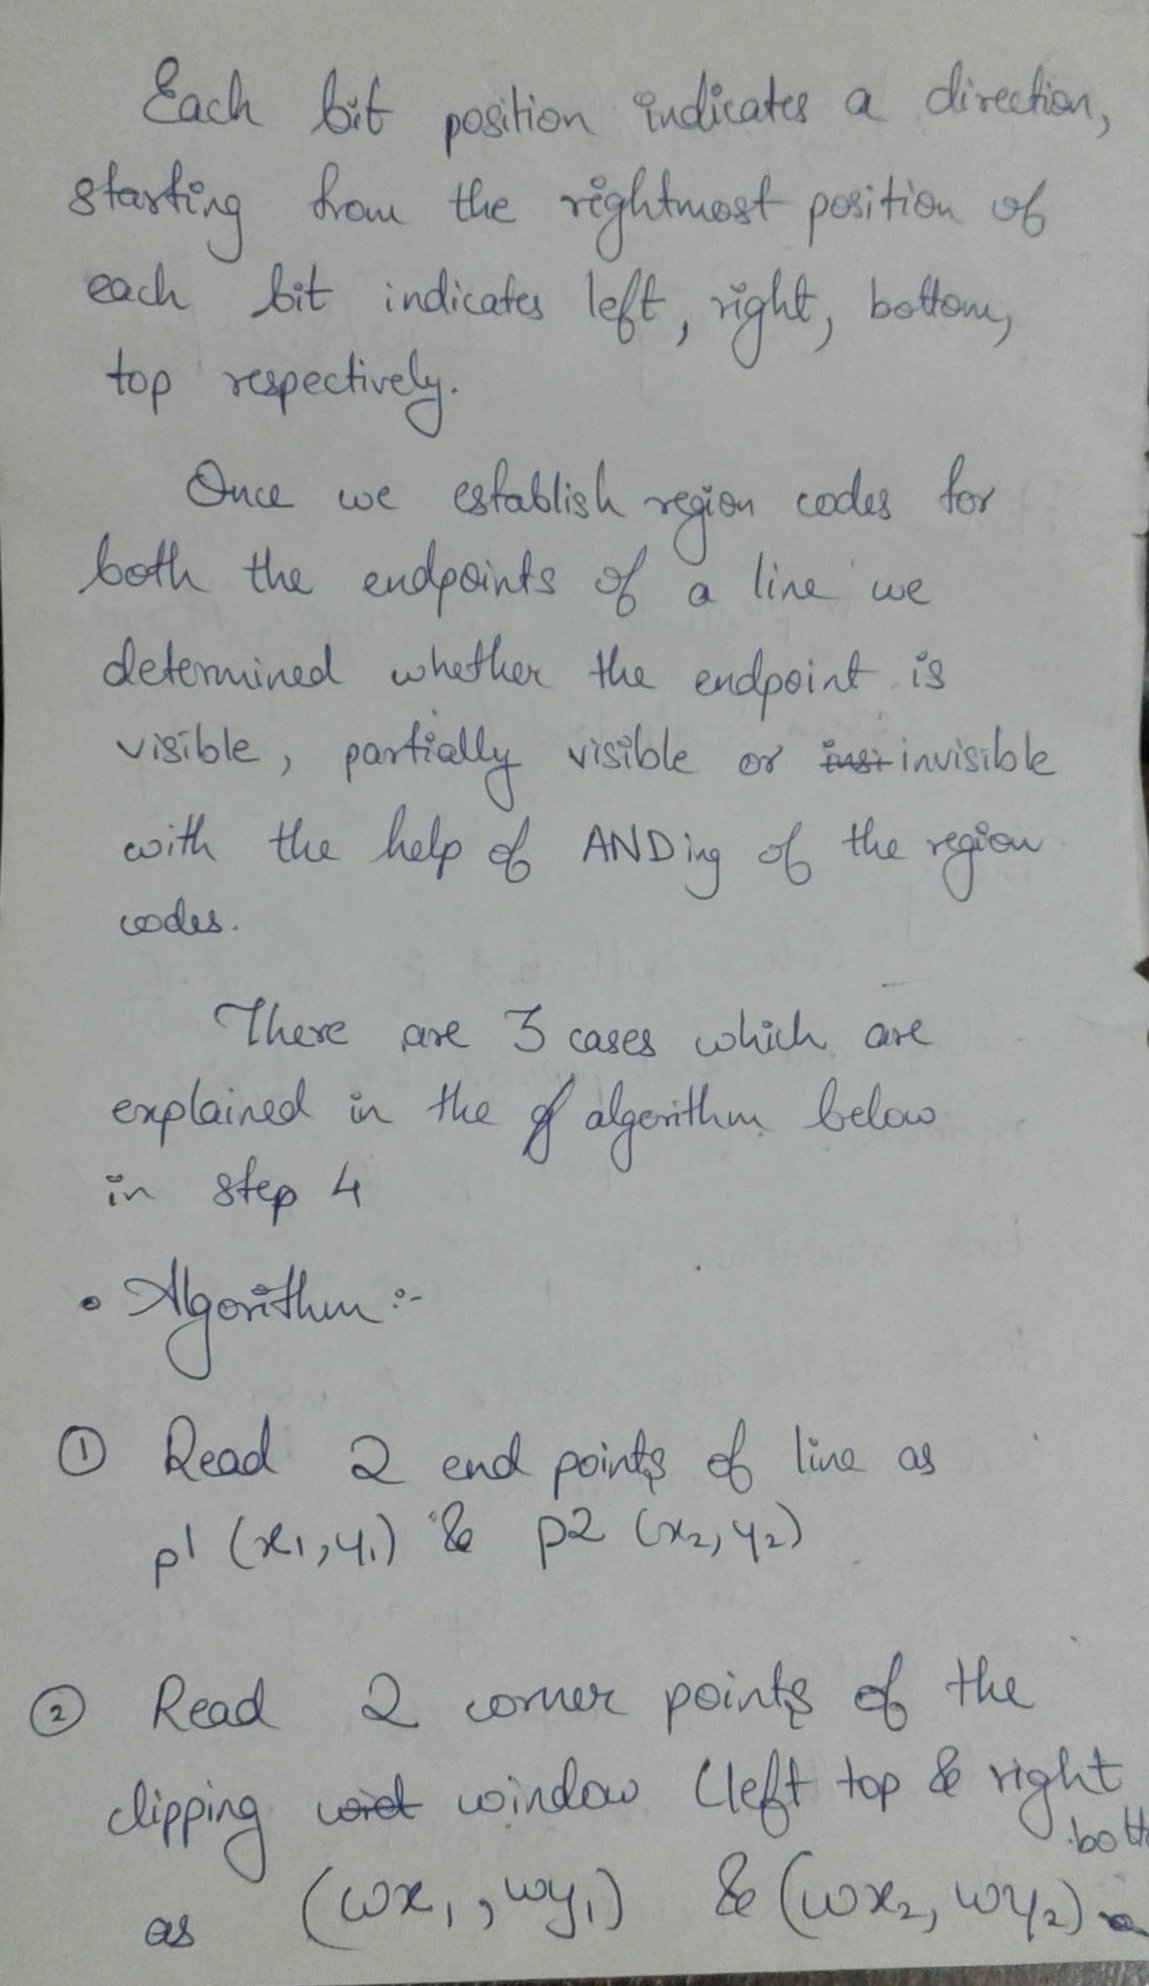 Each bit position indicates a direction,
starting from the rightmost position of
each bit indicates left, right, bottom,
top respectively.
Once we establish region codes for
both the endpoints of a line we
determined whether the endpoint is
visible, partially visible or invisible
with the help of ANDing of the region
codes.
There are 3 cases which are
explained in the algorithm below
in step 4
• Algorithm :-
① Read 2 end points of line as
p1 (x1, y1) & p2 (x2, y2)
② Read 2 corner points of the
clipping window (left top & right
bott
as (wx1, wy1) & (wx2, wy2)